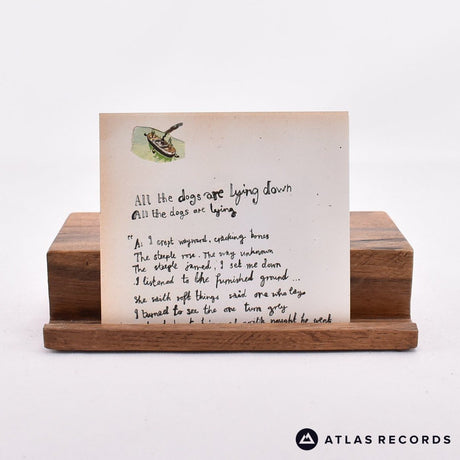 All the dogs are lying down
All the dogs are lying
"A: I crept wayward, cracking bones
The steeple rose. The way unknown
The steeple jarred, I set me down
I listened to the furnished ground...
She saith soft things said one who lays
I turned to see the one turn grey
he went
ATLAS RECORDS